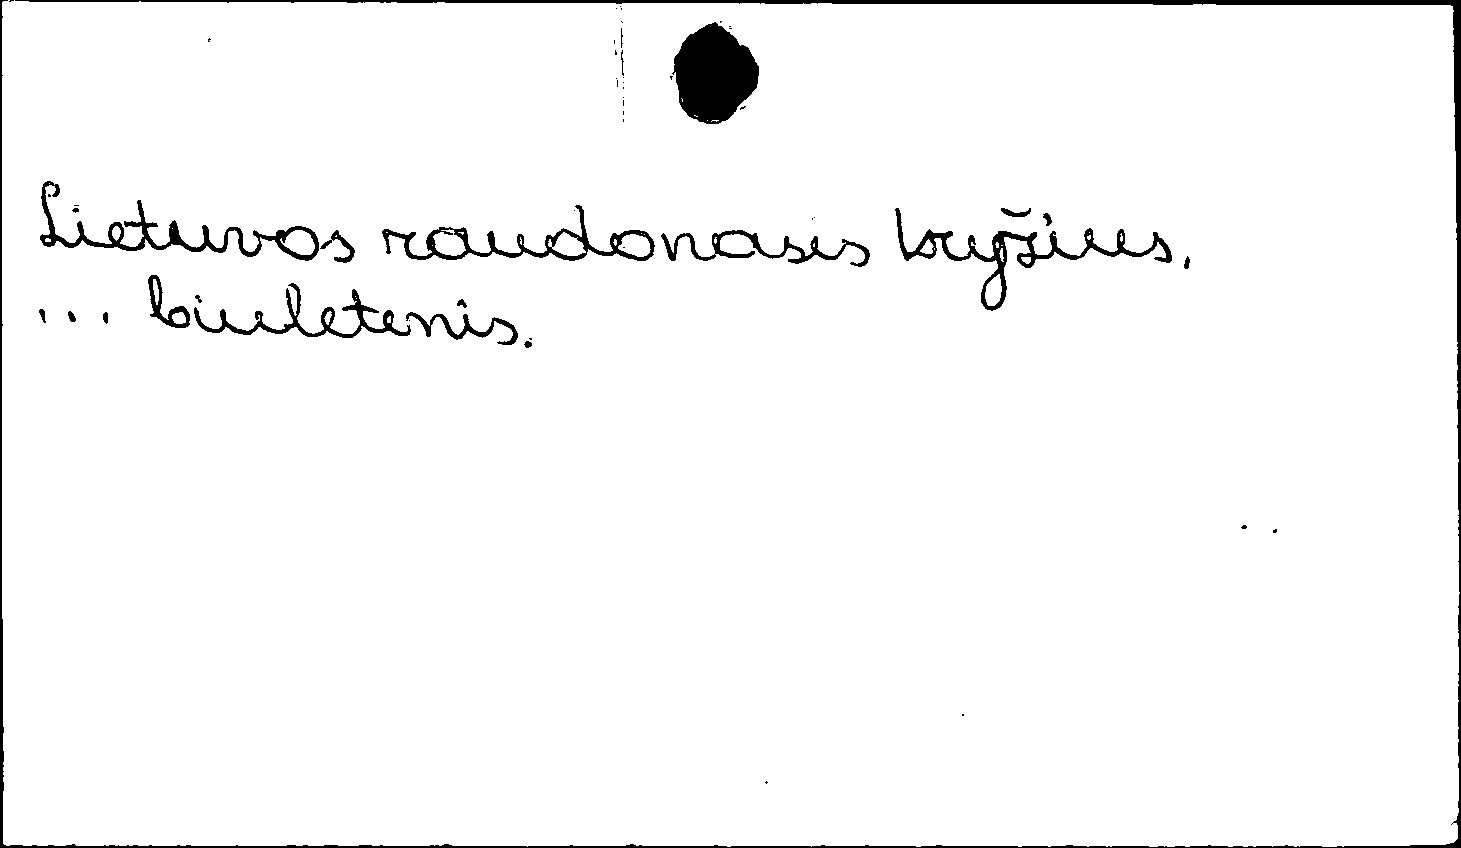 Lietuvos raudonasis kryžius.
... biuletenis.